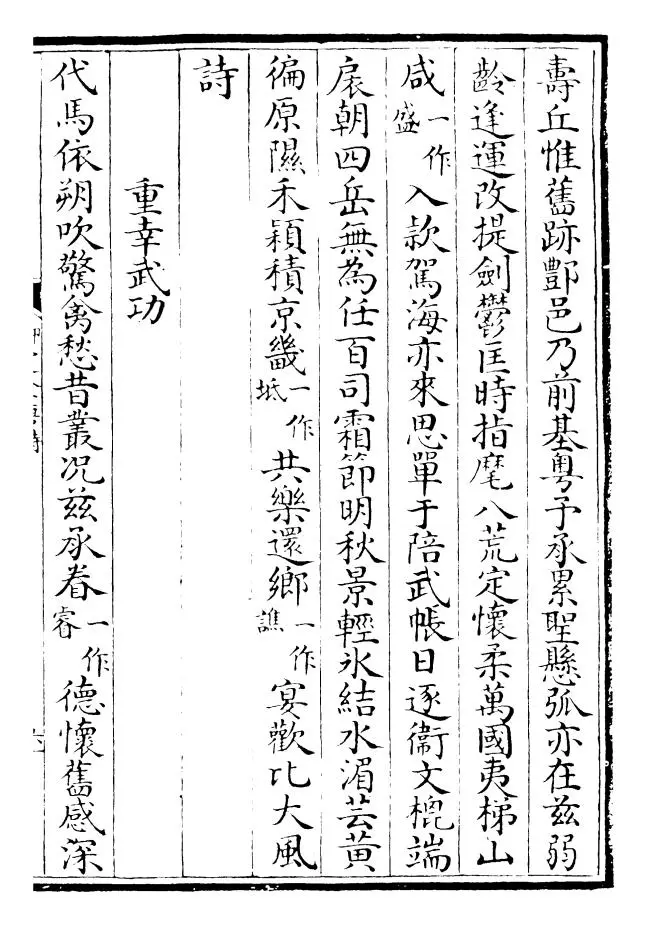 壽丘惟舊跡酆邑乃前基粵予承累聖懸弧亦在兹弱
齡逢運改提劍鬱匡時指麾八荒定懷柔萬國夷梯山
咸一作盛入款駕海亦來思單于陪武帳日逐衞文㮰端
扆朝四岳無為任百司霜節明秋景輕氷結水湄芸黄
徧原隰禾穎積京畿一作坻共樂還鄉一作譙宴歡比大風
詩
重幸武功
代馬依朔吹驚禽愁昔叢况兹承眷一作睿德懷舊感深